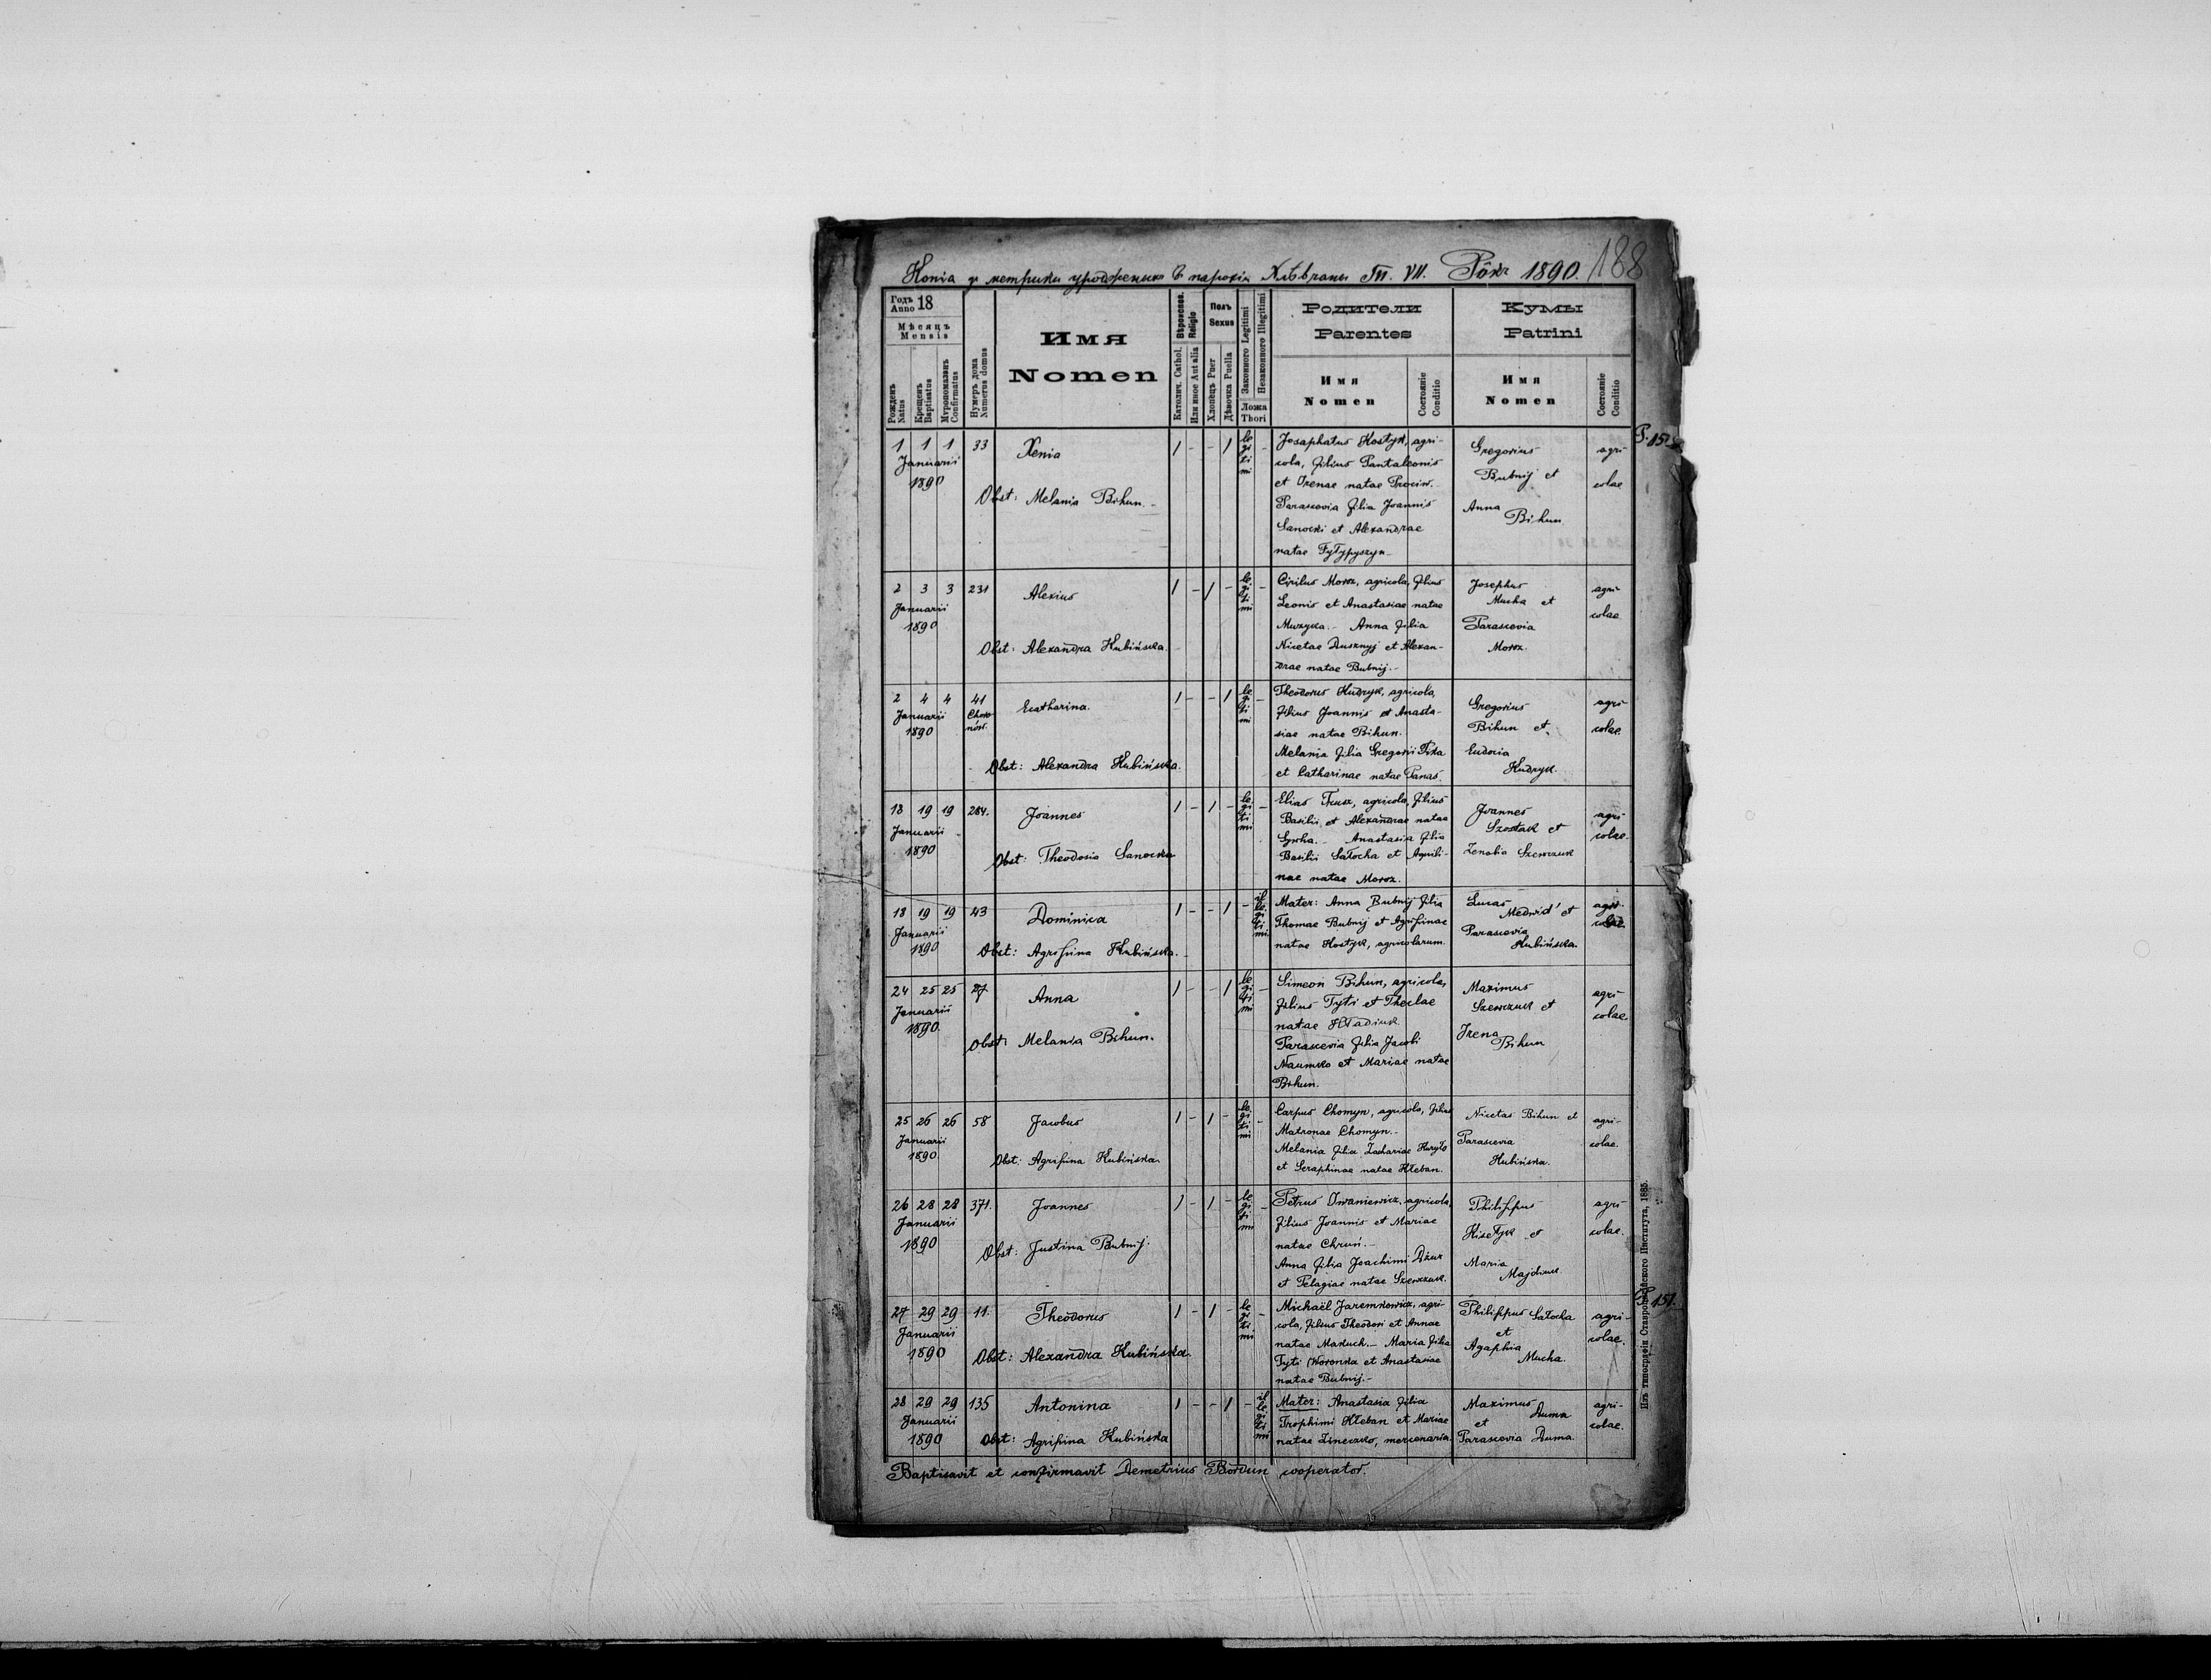 Копія з метрики уродженыхъ въ парохіи Хлѣвчаны Тп. VII. Рôкъ 1890. 188
Годъ Anno 18
Мѣсяцъ Mensis
Рожденъ Natus
Крещенъ Baptisatus
Мѵропомазанъ Confirmatus
Нумеръ дома Numerus domus
Имя
Nomen
Вѣроиспов. Religio
Католич. Cathol.
Или иное Aut alia
Полъ Sexus
Хлопецъ Puer
Дѣвочка Puella
Законного Legitimi
Незаконного Illegitimi
Ложа Thori
Родители
Parentes
Имя
Nomen
Состояніе Conditio
Кумы
Patrini
Имя
Nomen
Состояніе Conditio
P. 151
1 1 1 33
Januarii
1890
Xenia
Obst: Melania Bihun.
1 - - 1 legitimi -
Josaphatus Kostyk, agri-
cola, filius Pantaleonis
et Irenae natae Prociw.
Parascevia filia Joannis
Sanocki et Alexandrae
natae
Gregorius
Bubnij et
Anna
Bihun
agri-
colae
2 3 3 231
Januarii
1890
Alexius
Obst: Alexandra Kubińska.
1 - 1 - legitimi -
Cirilus Moroz, agricola, filius
Leonis et Anastasiae natae
Muzyka. - Anna filia
Nicetae Dusznyj et Alexan-
drae natae Bubnij. -
Josephus
Mucha et
Parascevia
Moroz.
agri-
colae
2 4 4 41
Januarii
1890
Ecatharina.
Obst: Alexandra Kubińska.
1 - - 1 legitimi -
Theodorus Kudryk, agricola,
filius Joannis et Anasta-
siae natae Bihun.
Melania filia Gregorii
et Catharinae natae Panas.
Gregorius
Bihun et
Eudocia
Kudryk.
agri-
colae.
18 19 19 284.
Januarii
1890
Joannes
Obst: Theodosia Sanocka
1 - 1 - legitimi -
Elias Trusz, agricola, filius
Basilii et Alexandrae natae
Anastasia filia
Basilii Sałocha et Aquili-
nae natae Moroz.
Joannes
Szostak et
Zenobia Szewczuk
agri-
colae.
18 19 19 43
Januarii
1890
Dominica
Obst: Agrifina Kubińska.
1 - - 1 - illegitimi
Mater: Anna Bubnij filia
Thomae Bubnij et Agrifinae
natae Kostyk, agricolarum.
Lucas
Medwid' et
Parascevia
Kubińska.
agri-
colae.
24 25 25 27
Januarii
1890.
Anna
Obst: Melania Bihun.
1 - - 1 legitimi -
Simeon Bihun, agricola,
filius Tyti et Theclae
natae Hładiuk.
Parascevia filia Jacobi
Naumko et Mariae natae
Bihun.
Maximus
Szewczuk et
Irena
Bihun
agri-
colae.
25 26 26 58
Januarii
1890
Jacobus
Obst: Agrifina Kubińska.
1 - 1 - legitimi -
Carpus Chomyn, agricola, filius
Matronae Chomyn. -
Melania filia Zachariae Kuryło
et Seraphinae natae Kłeban.
Nicetas Bihun et
Parascevia
Kubińska.
agri-
colae.
26 28 28 371.
Januarii
1890
Joannes
Obst: Justina Bubnij.
1 - 1 - legitimi -
Petrus Iwaniewicz, agricola,
filius Joannis et Mariae
natae Chruń. -
Anna filia Joachimi Dżur
et Pelagiae natae Szewczuk.
Philippus
Kisełyk et
Maria
Majdiuk
agri-
colae.
P. 151.
27 29 29 11.
Januarii
1890
Theodorus
Obst: Alexandra Kubińska.
1 - 1 - legitimi -
Michaël Jaremkowicz, agri-
cola, filius Theodori et Annae
natae Makuch. - Maria filia
Tyti Woronka et Anastasiae
natae Bubnij. -
Philippus Sałocha
et
Agaphia
Mucha.
agri-
colae.
28 29 29 135
Januarii
1890
Antonina
Obst: Agrifina Kubińska
1 - - 1 - illegitimi
Mater: Anastasia filia
Trophimi Kłeban et Mariae
natae Zineczko, mercenaria.
Maximus
Duma
et
Parascevia Duma.
agri-
colae.
Baptisavit et confirmavit Demetrius Bordun cooperator.
Изъ типографіи Ставропигійского Института, 1885.